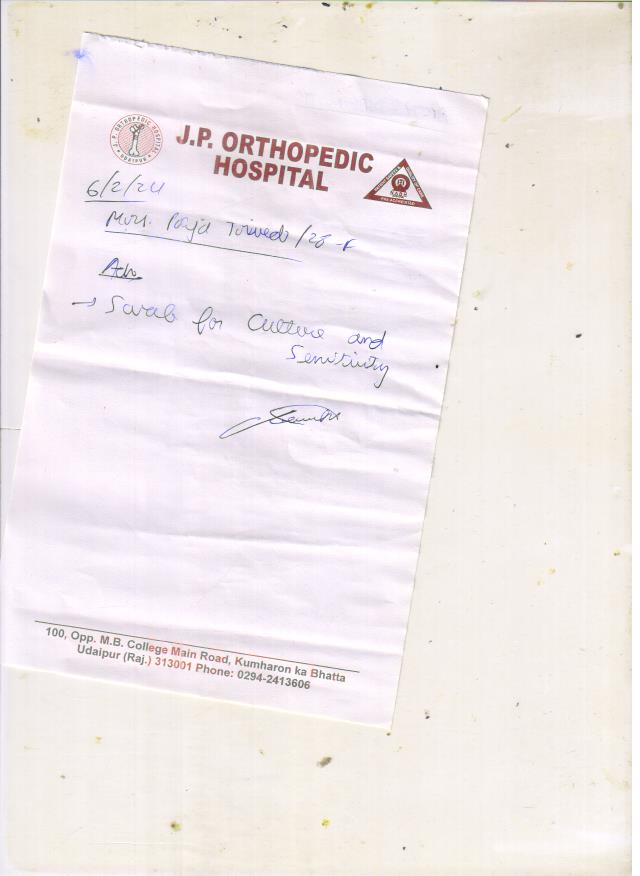 J.P. ORTHOPEDIC HOSPITAL
UDAIPUR
J.P. ORTHOPEDIC
HOSPITAL
PRE ACCREDITED
6/2/24
/28 -F
Adv
→ Swab for Culture and
Sensitivity
100, Opp. M.B. College Main Road, Kumharon ka Bhatta
Udaipur (Raj.) 313001 Phone: 0294-2413606